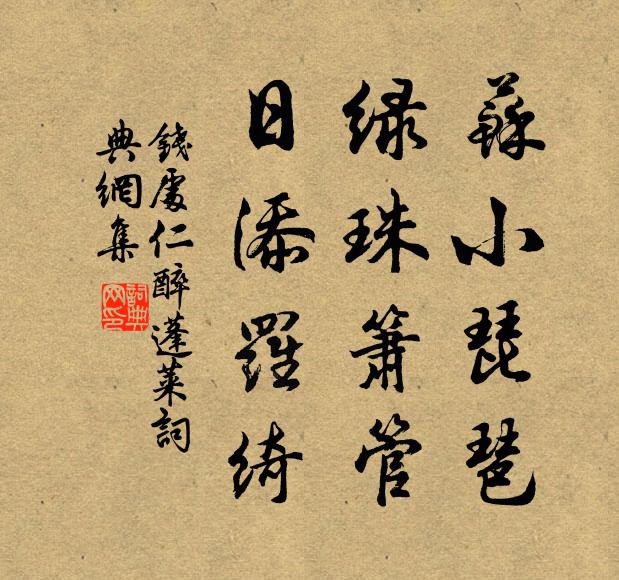 蘇小琵琶
綠珠簫管
日添羅綺
錢處仁醉蓬萊詞
典網集
詞典網印